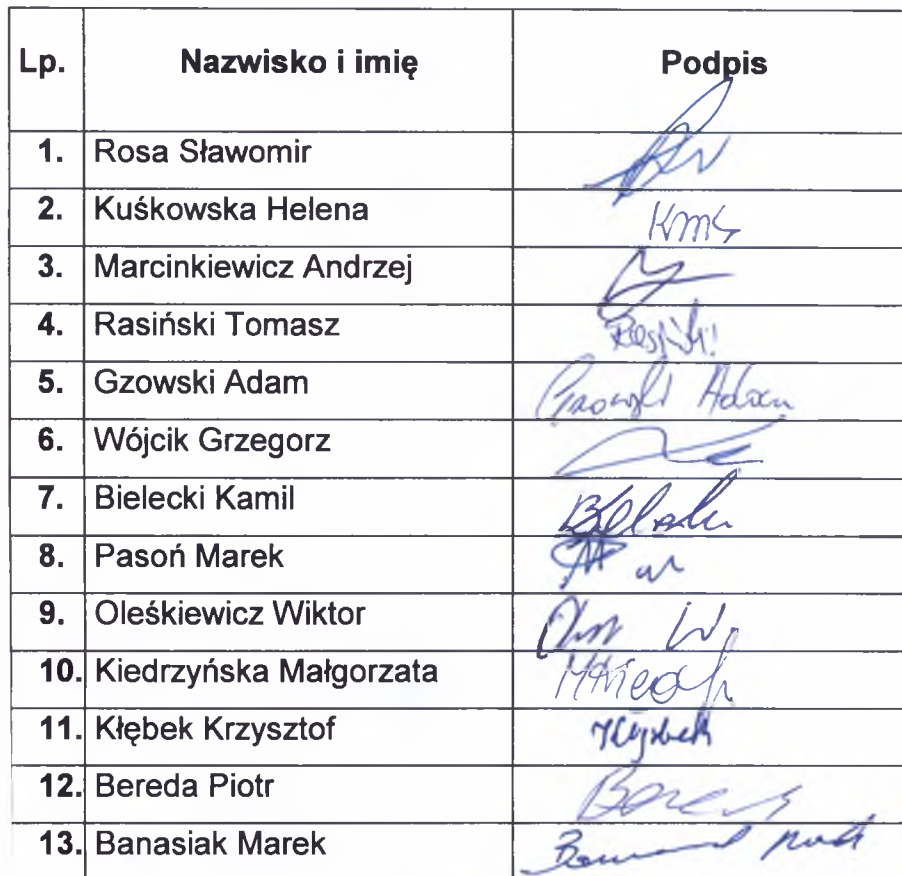 Lp. Nazwisko i imię Podpis
1. Rosa Sławomir
2. Kuśkowska Helena
3. Marcinkiewicz Andrzej
4. Rasiński Tomasz
5. Gzowski Adam Gzowski Adam
6. Wójcik Grzegorz
7. Bielecki Kamil
8. Pasoń Marek
9. Oleśkiewicz Wiktor
10. Kiedrzyńska Małgorzata
11. Kłębek Krzysztof
12. Bereda Piotr
13. Banasiak Marek